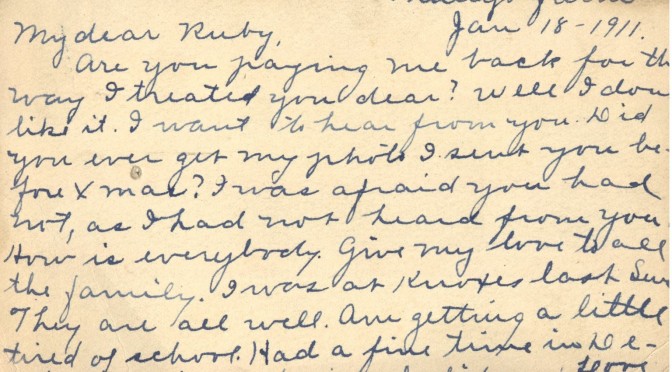 Jan 18-1911.
My dear Ruby,
Are you paying me back for th
way I treated you dear? Well I don
like it. I want to hear from you. Did
you ever get my photo I sent you be-
fore Xmas? I was afraid you had
not, as I had not heard from you
How is everybody. Give my love to all
the family. I was at Knoxes last Sun
They are all well. Am getting a little
tired of school. Had a fine time in De-